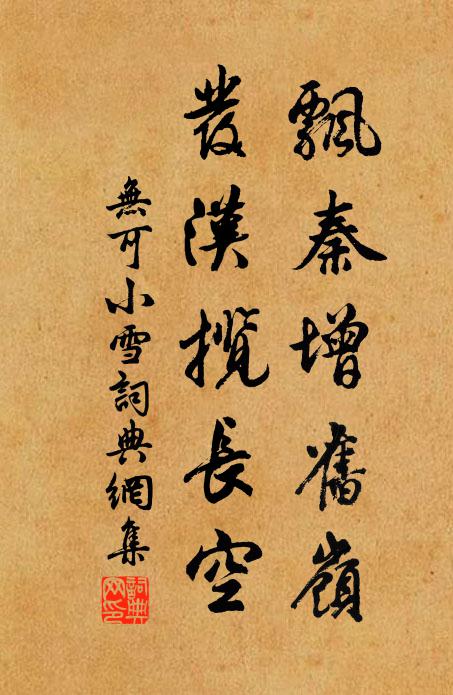 飄秦增舊嶺
發漢攬長空
無可小雪詞典網集
詞典網印